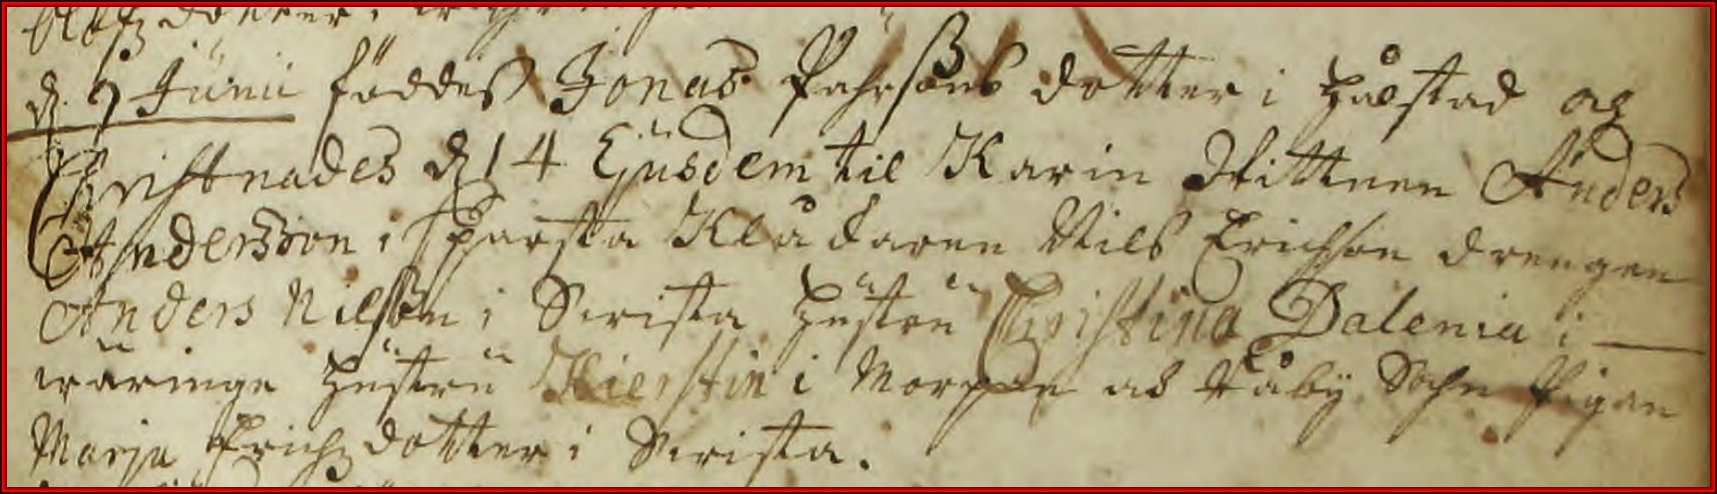 dotter i
d. 7 Junii föddes Jonas Pährsons dotter i Håstad og
Christnades d 14 Ejusdem til Karin Wittnen Anders
Andersson i Sparsta Klåckaren Nils Erichson drengen
Anders Nilsson i Skrista hustru Christina Dalenia i
wäringe hustru Kierstin i af Tåby Sokn Pigan
Marja Erichzdotter i Skrista.